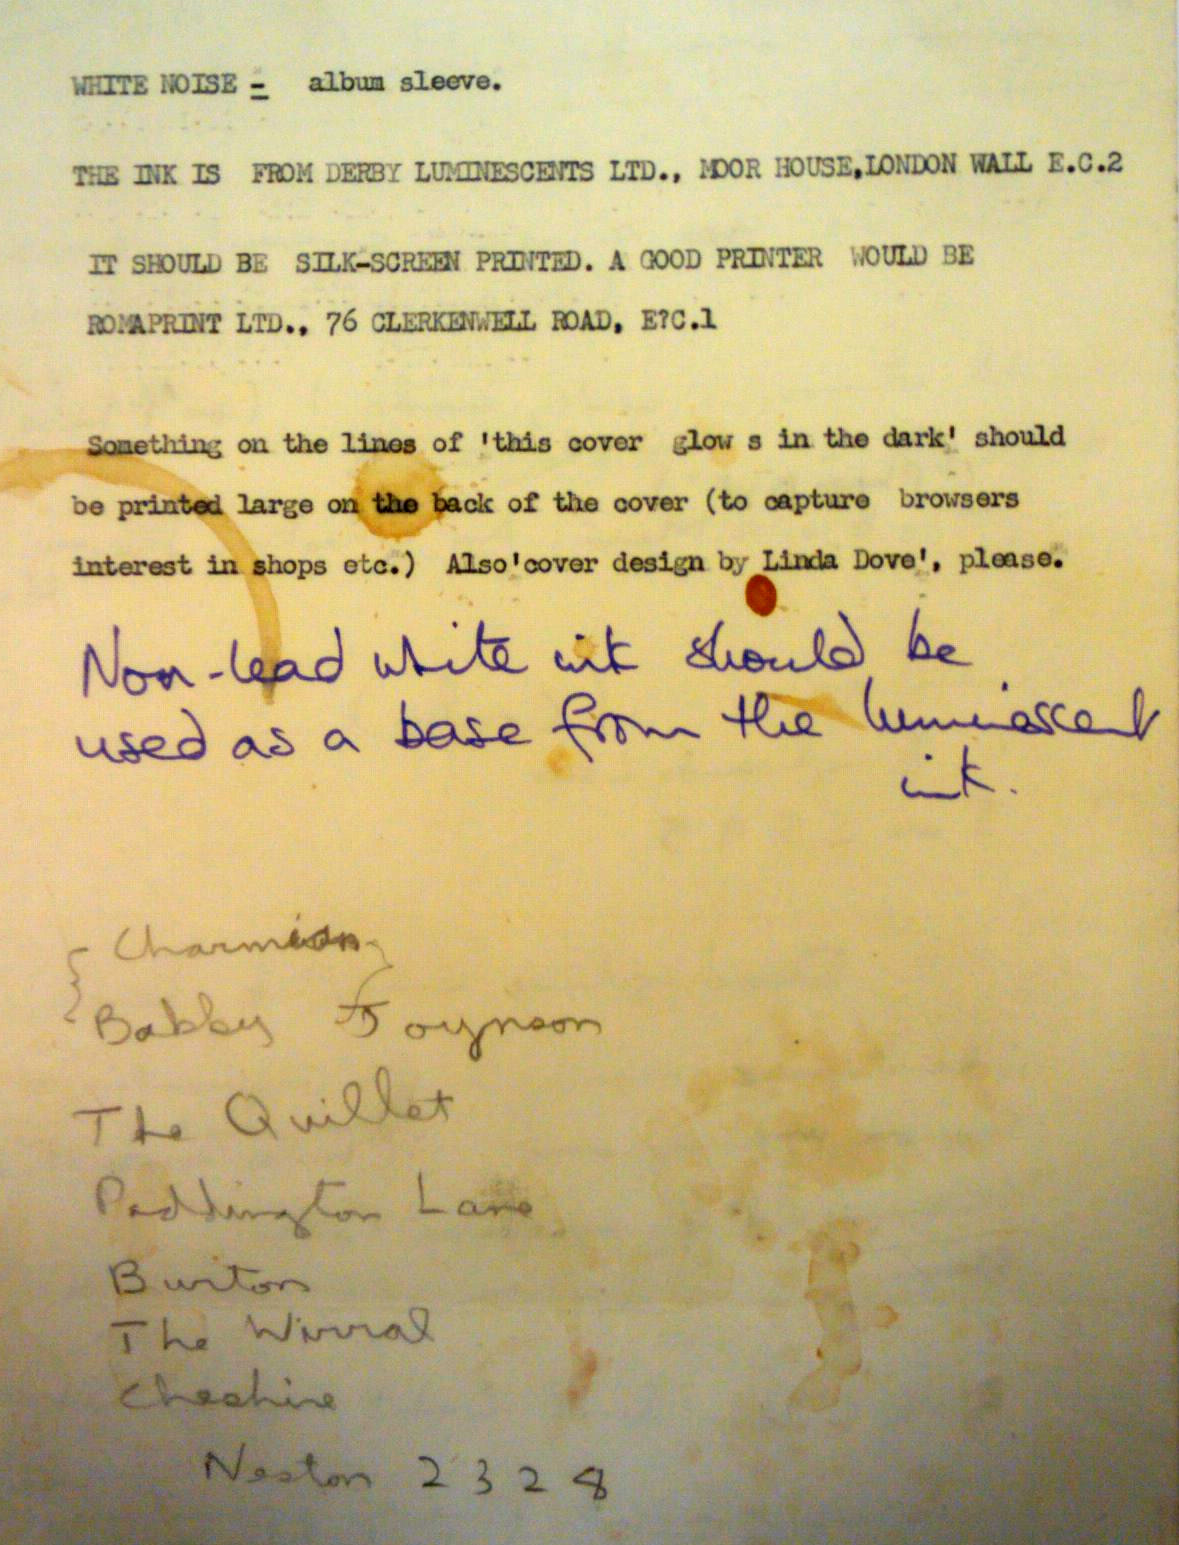 WHITE NOISE - album sleeve.
THE INK IS FROM DERBY LUMINESCENTS LTD., MOOR HOUSE,LONDON WALL E.C.2
IT SHOULD BE SILK-SCREEN PRINTED. A GOOD PRINTER WOULD BE
ROMAPRINT LTD., 76 CLERKENWELL ROAD, E?C.1
Something on the lines of 'this cover glow s in the dark' should
be printed large on the back of the cover (to capture browsers
interest in shops etc.) Also'cover design by Linda Dove', please.
Non-lead white ink should be
used as a base from the luminescent
ink.
Charmian
Bobby Joynson
The Quillet
Puddington Lane
Burton
The Wirral
Cheshire
Neston 2328